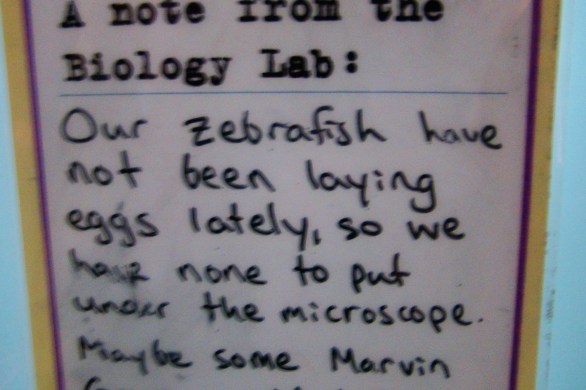 A note from the
Biology Lab:
Our zebrafish have
not been laying
eggs lately, so we
have none to put
under the microscope.
Maybe some Marvin